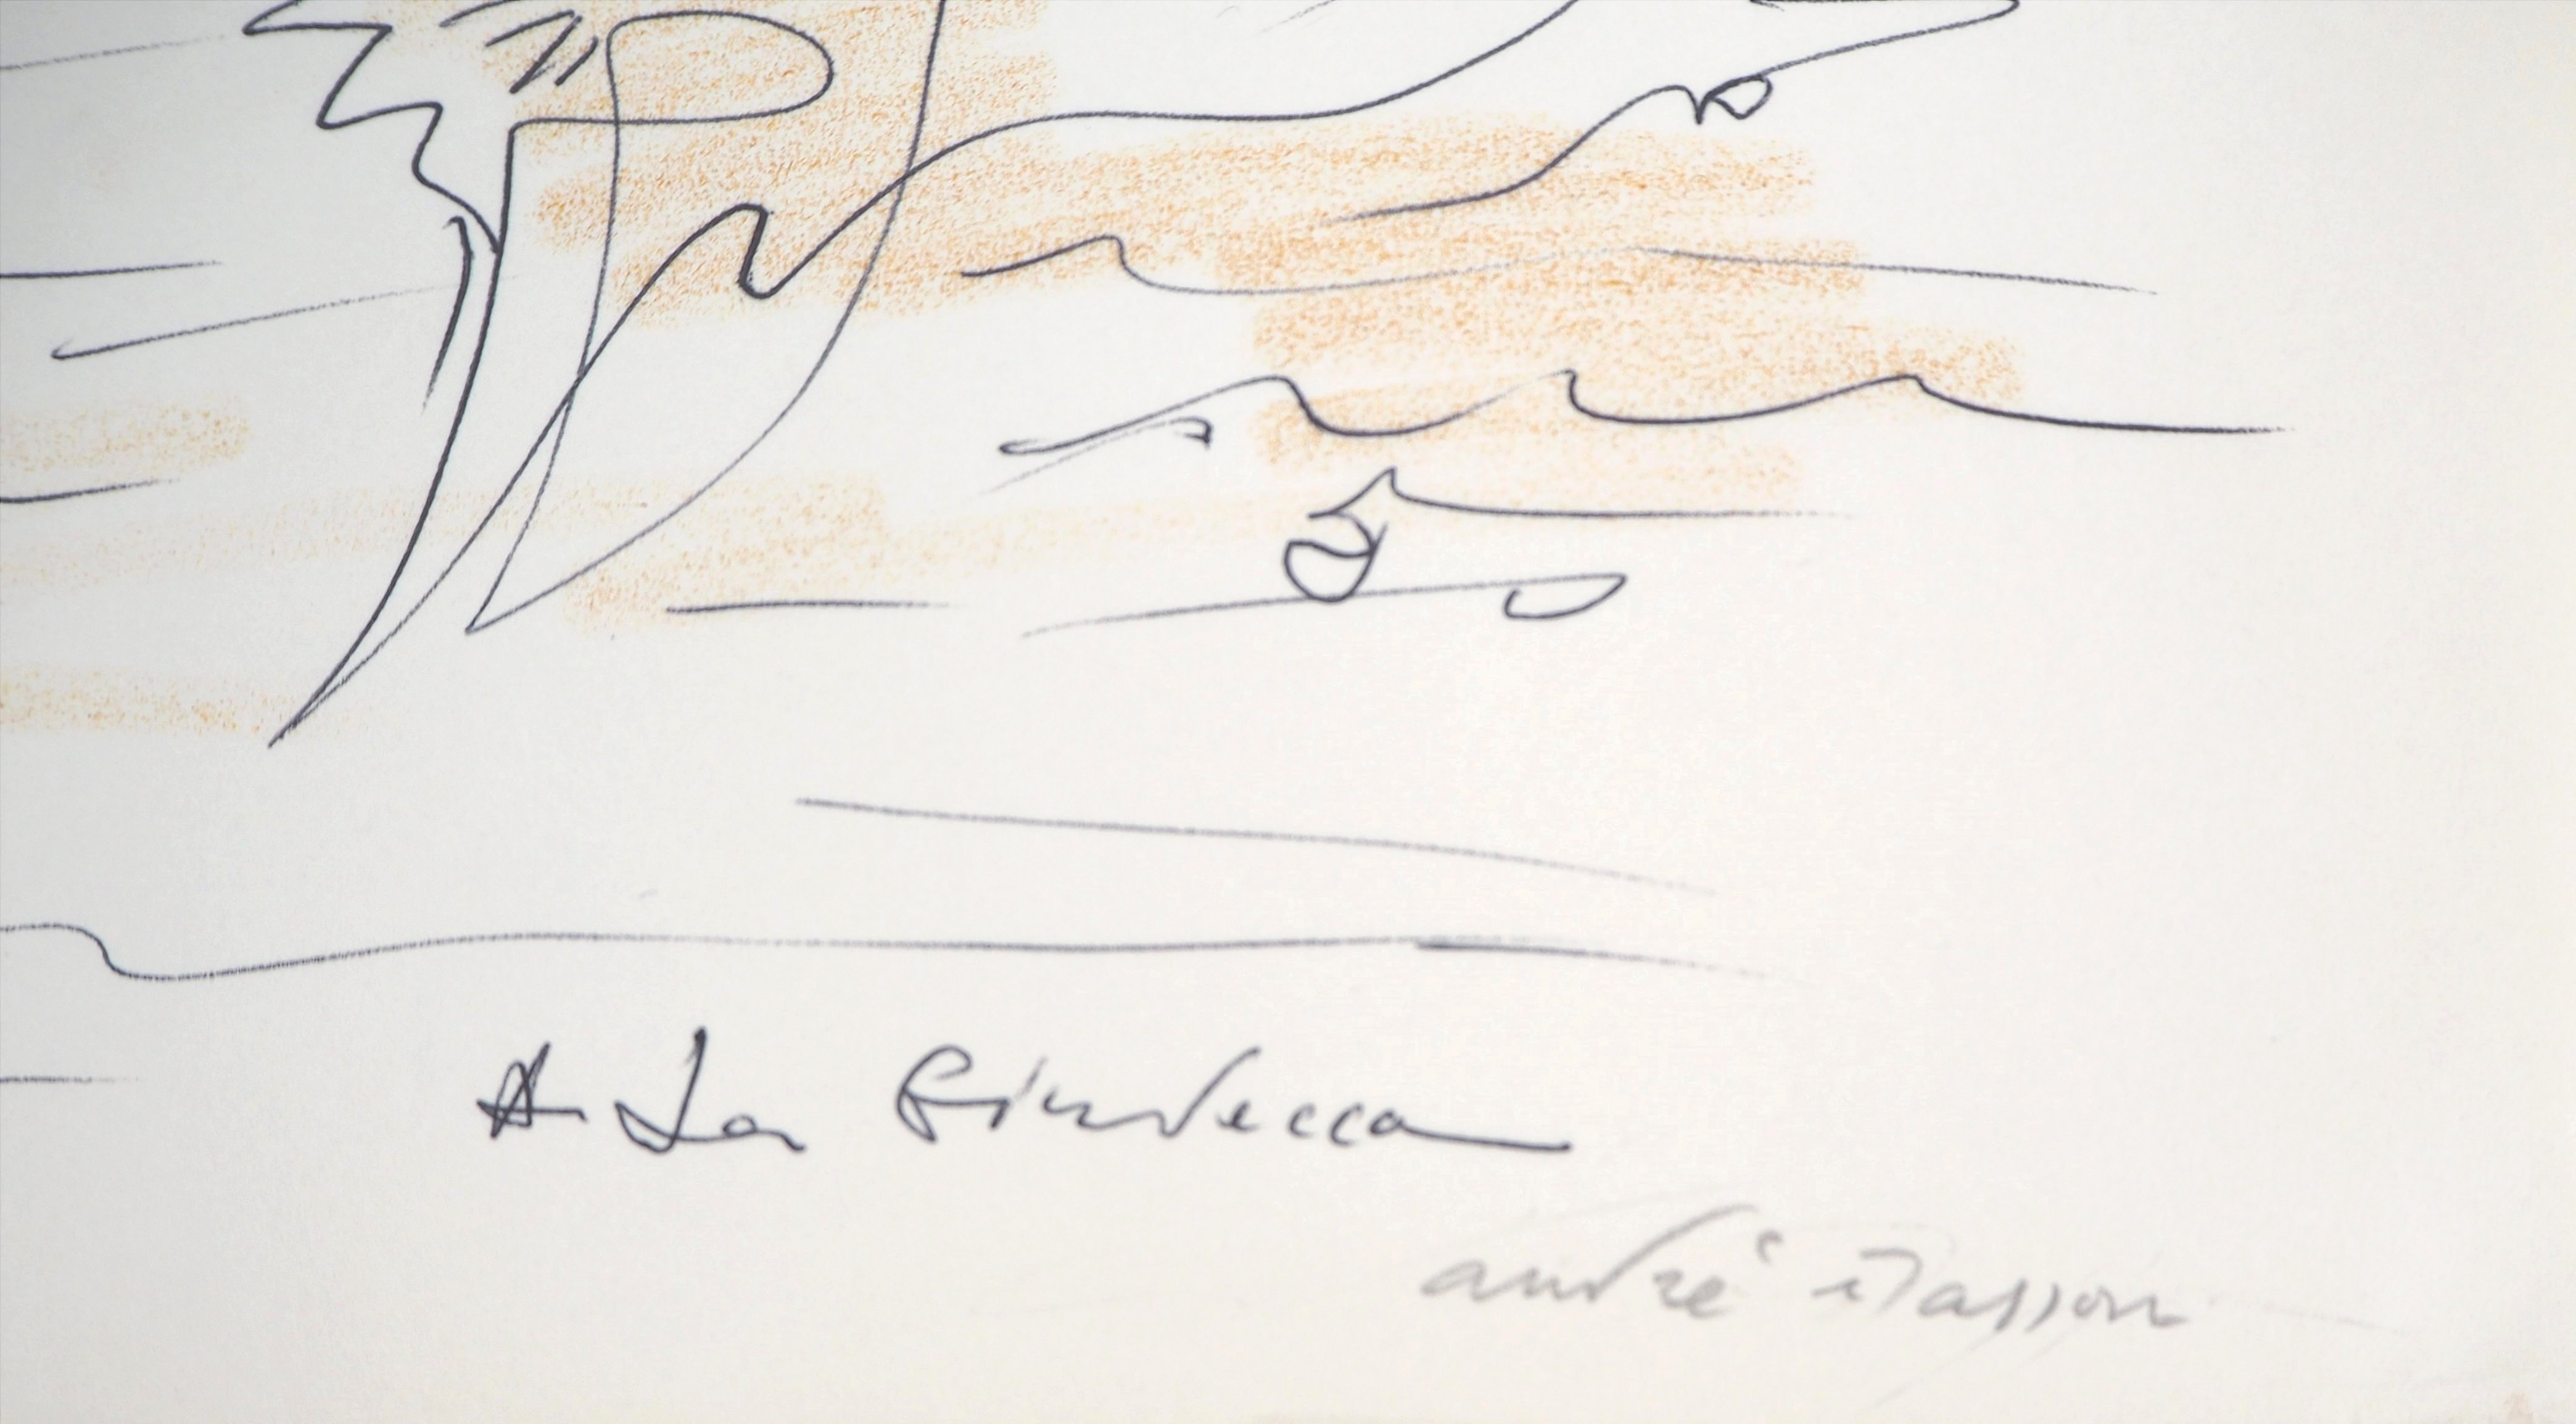 A La Giudecca
andré Masson